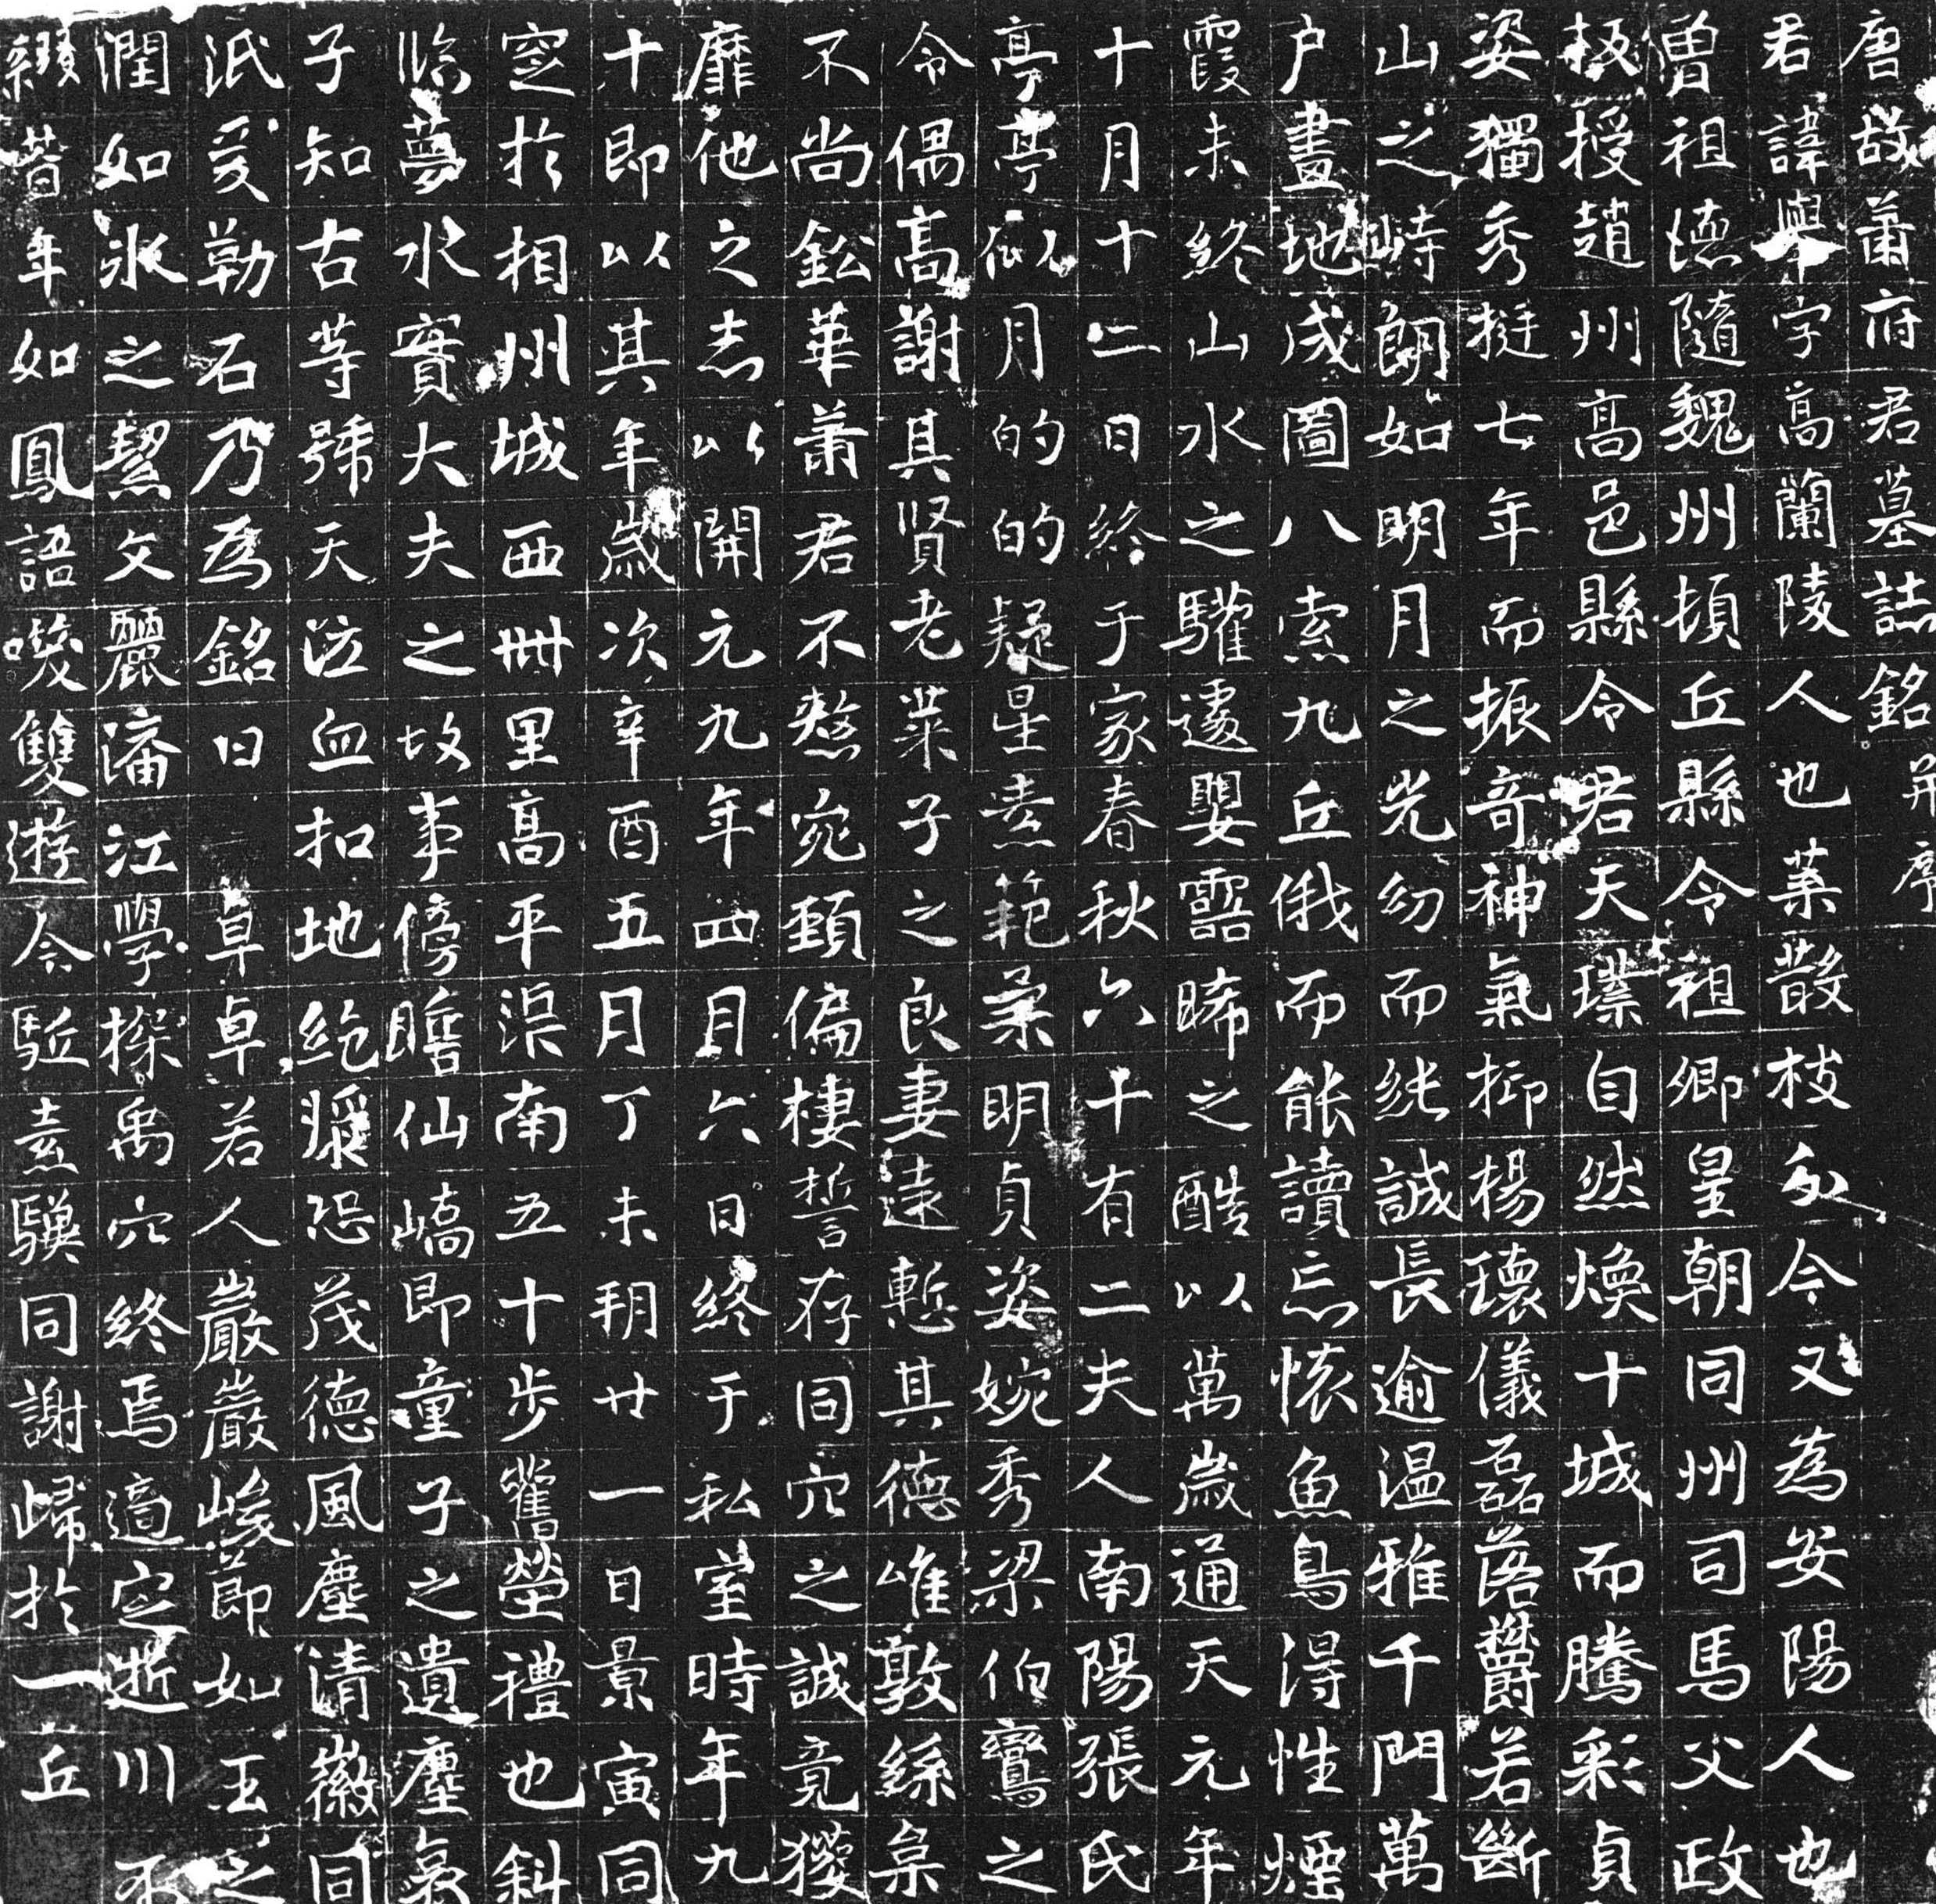 唐故蕭府君墓誌銘并序
君諱舉字高蘭陵人也葉散枝分今又為安陽人也
曾祖德隨魏州頓丘縣令祖卿皇朝同州司馬父政
板授趙州高邑縣令君天璞自然煥十城而騰彩貞
姿獨秀挺七年而振奇神氣抑揚瓌儀磊落欝若斷
山之峙朗如明月之光幼而純誠長逾温雅千門萬
户畫地成圖八索九丘俄而能讀忘懷魚鳥得性煙
霞未終山水之驩遽嬰霑晞之酷以萬歲通天元年
十月十二日終于家春秋六十有二夫人南陽張氏
亭亭似月的的疑星素範柔明貞姿婉秀梁伯鸞之
令偶高謝其賢老萊子之良妻遠慙其德唯敦絲枲
不尚鈆華蕭君不慭宛頸偏棲誓存同穴之誠竟獲
靡他之志以開元九年四月六日終于私室時年九
十即以其年歲次辛酉五月丁未朔廿一日景寅同
窆於相州城西卌里高平渠南五十步舊塋禮也斜
臨夢水實大夫之故事傍瞻仙嶠即童子之遺塵
子知古等號天泣血扣地絶漿恐茂德風塵清徽同
泯爰勒石乃為銘曰 卓卓若人巖巖峻節如玉之
潤如氷之潔文麗潘江學探禹穴終焉適定逝川不
綴昔年如鳳語噯雙遊今駈素驥同謝歸於一丘